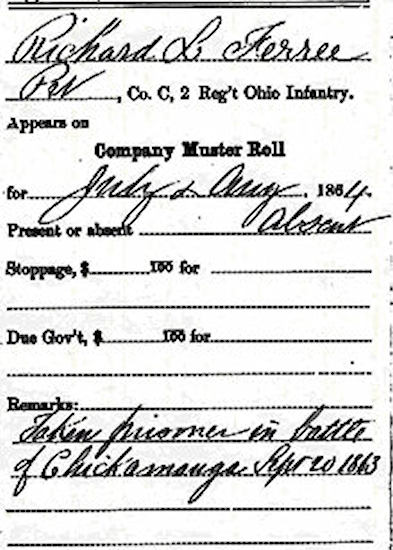 Richard L Ferree
Pvt, Co. C, 2 Reg't Ohio Infantry.
Appears on
Company Muster Roll
for July & Aug, 1864.
Present or absent Absent
Stoppage, $ 100 for
Due Gov't, $ 100 for
Remarks:
Taken prisoner in battle
of Chickamauga Sept 20 1863